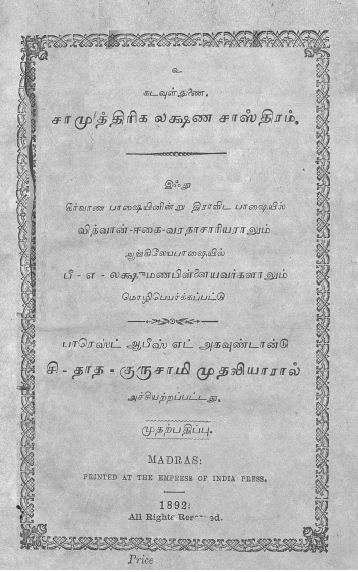 உ
கடவுள்துணை.
சாமுத்திரிக லக்ஷண சாஸ்திரம்.
இஃது
கீர்வாண பாஷையினின்று திராவிட பாஷையில்
வித்வான்-ஈகை-வரதாசாரியராலும்
ஆங்கிலேயபாஷையில்
பீ - எ - லக்ஷுமணபிள்ளையவர்களாலும்
மொழிபெயர்க்கப்பட்டு
பாரெஸ்ட் ஆபீஸ் எட் அகவுண்டாண்டு
சி - தாத - குருசாமி முதலியாரால்
அச்சியற்றப்பட்டது.
முதற்பதிப்பு.
MADRAS:
PRINTED AT THE EMPRESS OF INDIA PRESS.
1892.
All Rights Reserved.
Price